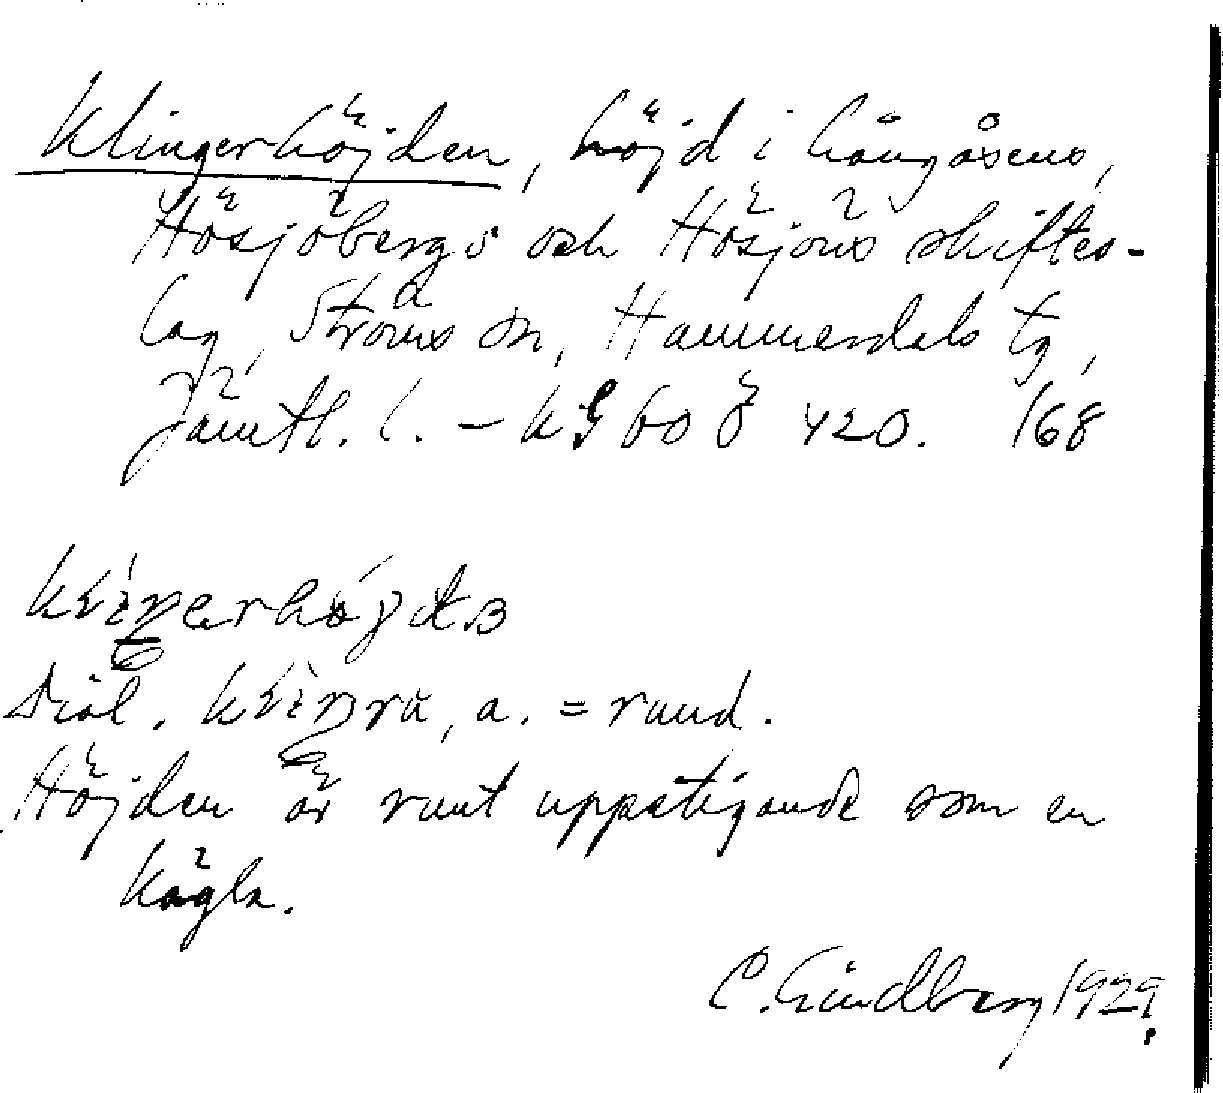 Klingerhöjden, höjd i Långåsens,
Hösjöbergs och Hösjöns skiftes-
lag, Ströms sn, Hammerdals tg,
Jämtl. l. – k G 60 Ö 420. 168
Dial. a. = rund.
Höjden är runt uppstigande som en
kägla.
C. Lindberg 1929.